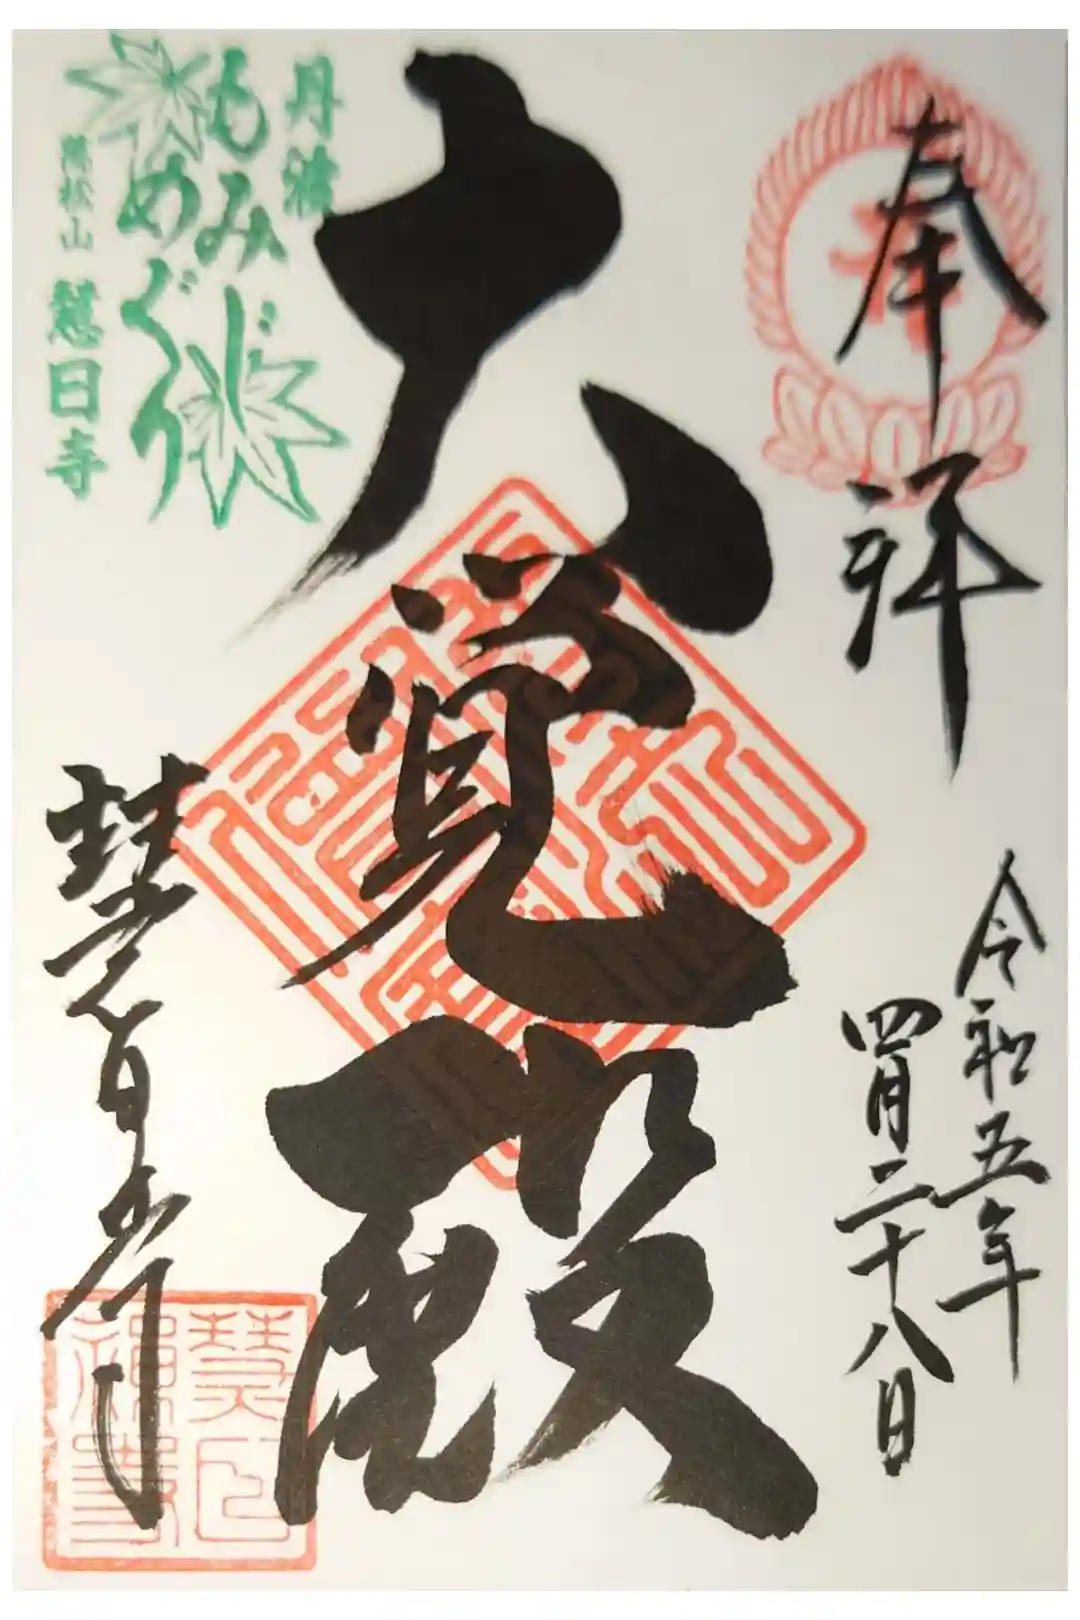 奉拝
令和五年
四月二十八日
大覚殿
丹波
もみじ
めぐり
慧日寺
慧日寺